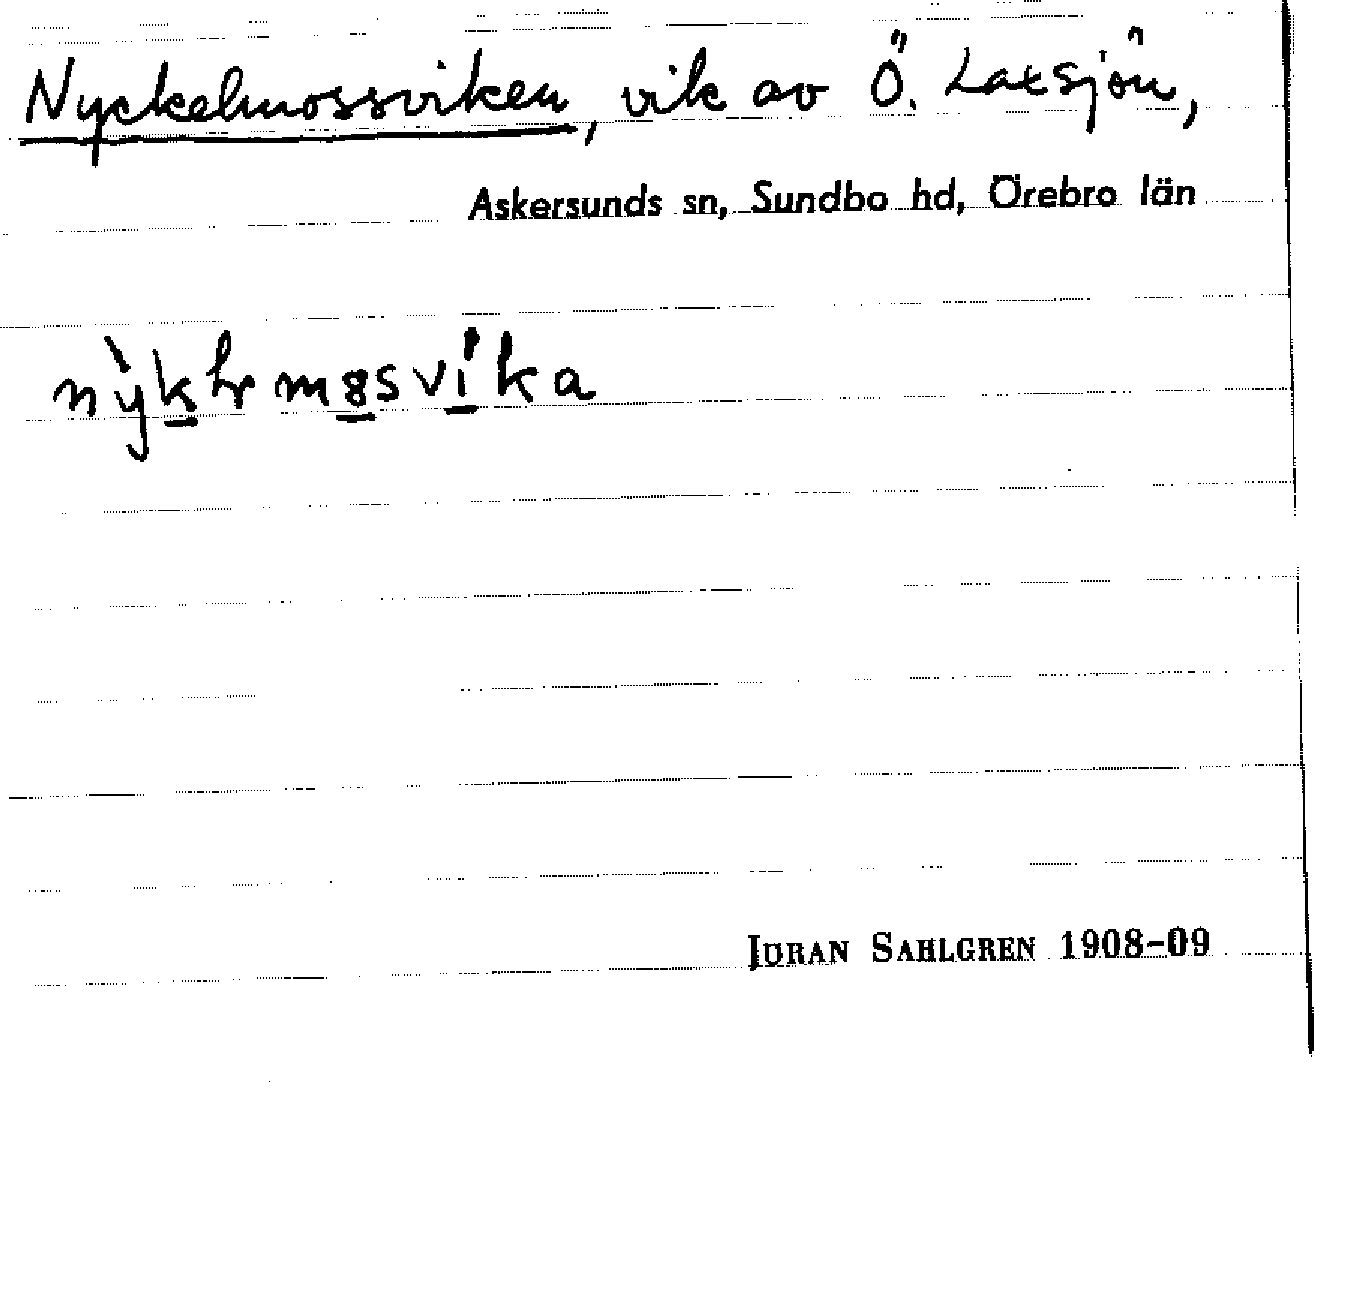 Nyckelmossviken, vik av Ö. Laxsjön,
Askersunds sn, Sundbo hd, Örebro län
JÖRAN SAHLGREN 1908-09